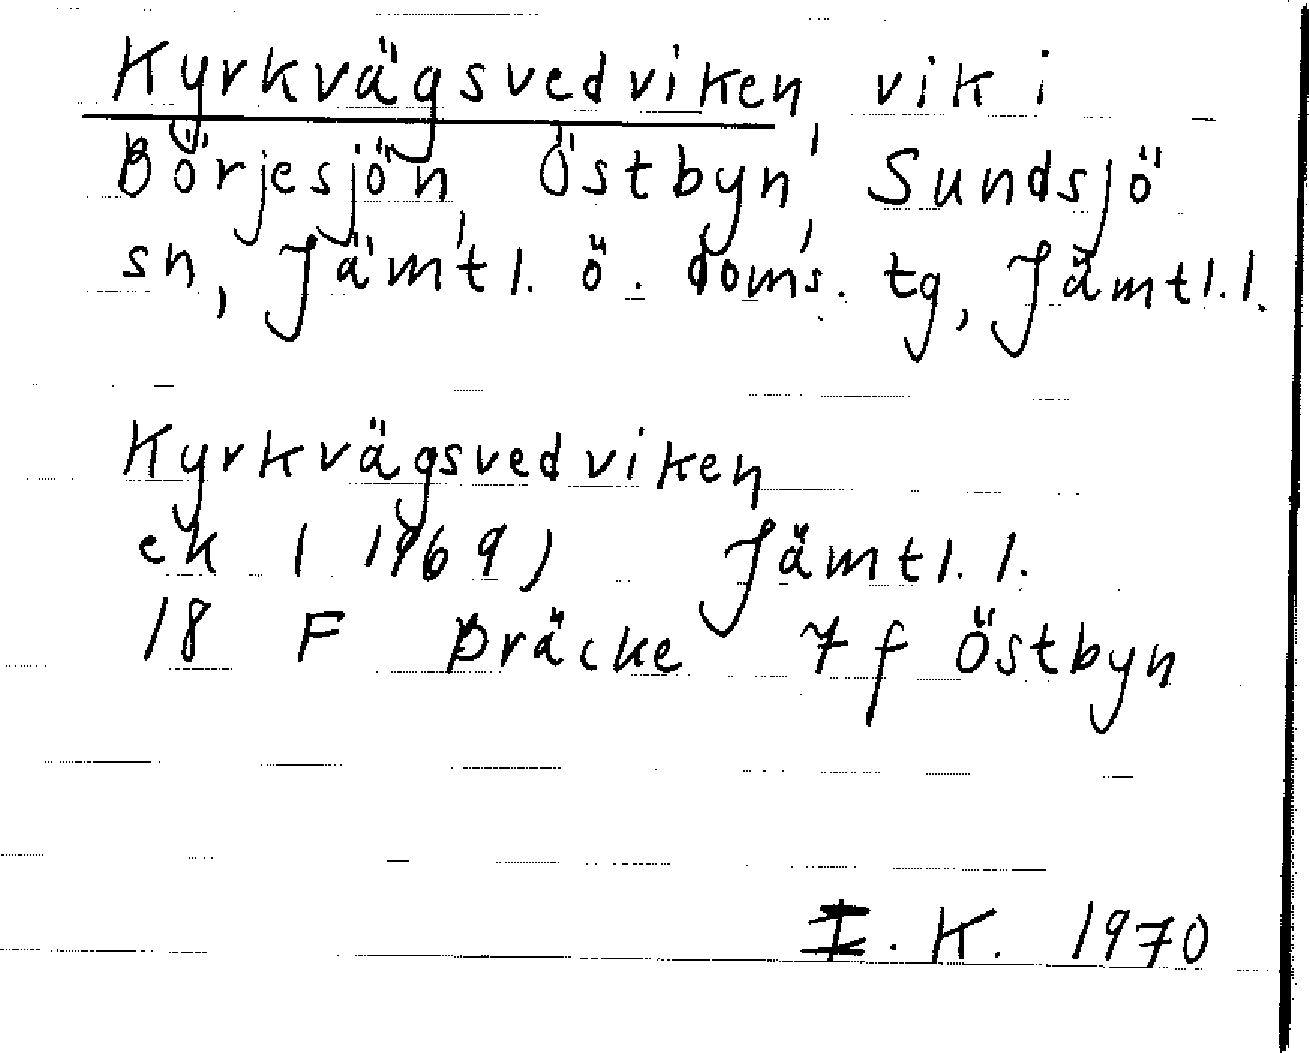 Kyrkvägsvedviken, vik i
Börjesjön, Östbyn, Sundsjö
sn, Jämtl. ö. doms. tg, Jämtl. l.
Kyrkvägsvedviken
ek (1969) Jämtl. l.
18 F Bräcke 7 f Östbyn
I. K. 1970